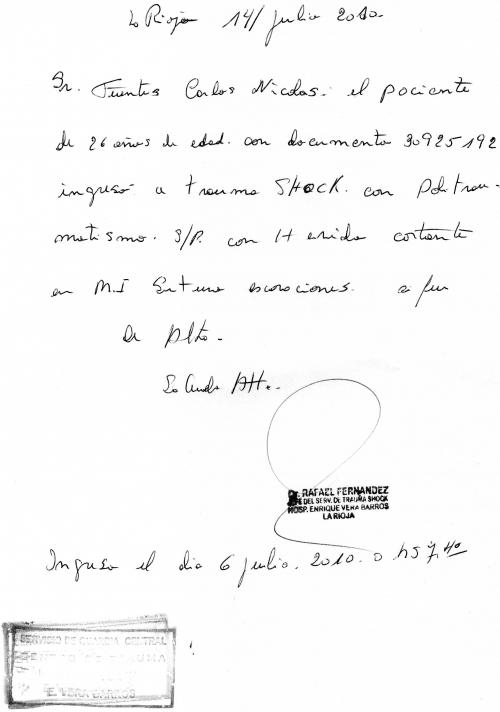 La Rioja 14/ Julio 2010.
Sr. Fuentes Carlos Nicolas. el paciente
de 26 años de edad. con documento 30925192
ingreso a trauma SHOCK. con Politrau-
matismo. S/P. con Herida cortante
en M.I Sutura escoriaciones. se fue
de Alta.
Lo Saluda Att.
Dr. RAFAEL FERNANDEZ
DEL SERV. DE TRAUMA SHOCK
HOSP. ENRIQUE VERA BARROS
LA RIOJA
Ingreso el dia 6 julio. 2010. a hs 7:40
SERVICIO DE GUARDIA CENTRAL
TRAUMA
E. VERA BARROS